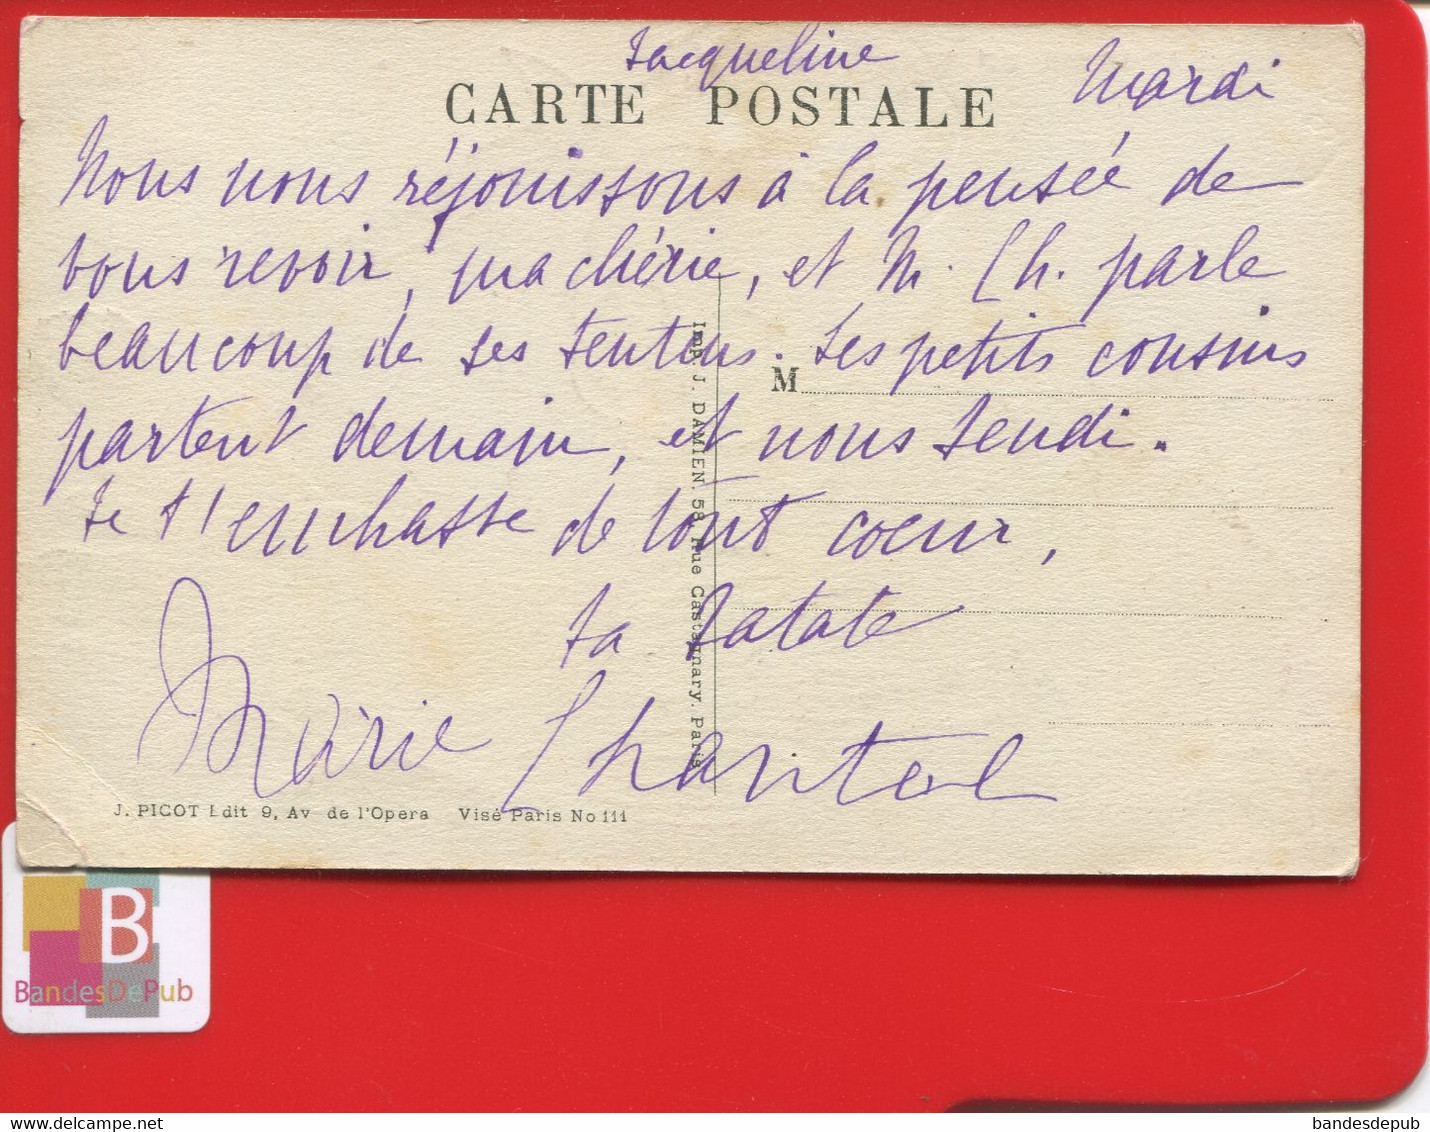 Jacqueline
Mardi
CARTE POSTALE
Nous nous réjouissons à la pensée de
vous revoir, ma chérie, et M. Ch. parle
beaucoup de ses tantes. Les petits cousins
partent demain, et nous Jeudi.
Je t'embrasse de tout coeur,
ta tatate
Marie Chantal
M
Imp. J. DAMIEN. 58, Rue Castagnary. Paris
J. PICOT Edit 9, Av de l'Opera Visé Paris No 111
B
BandesDePub
bandesdepub